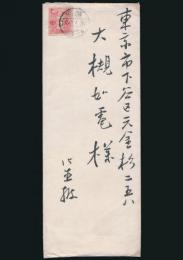 東京市下谷区元金杉二五八
大槻如電様